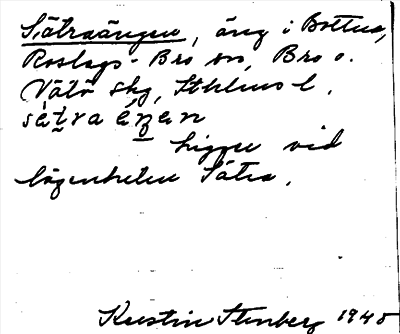 Sätraängen, äng i Bottna,
Roslags-Bro sn, Bro o.
Vätö skg, Sthlms l.
sètra éŋen
Ligger vid
lägenheten Sätra.
Kerstin Stenberg 1945